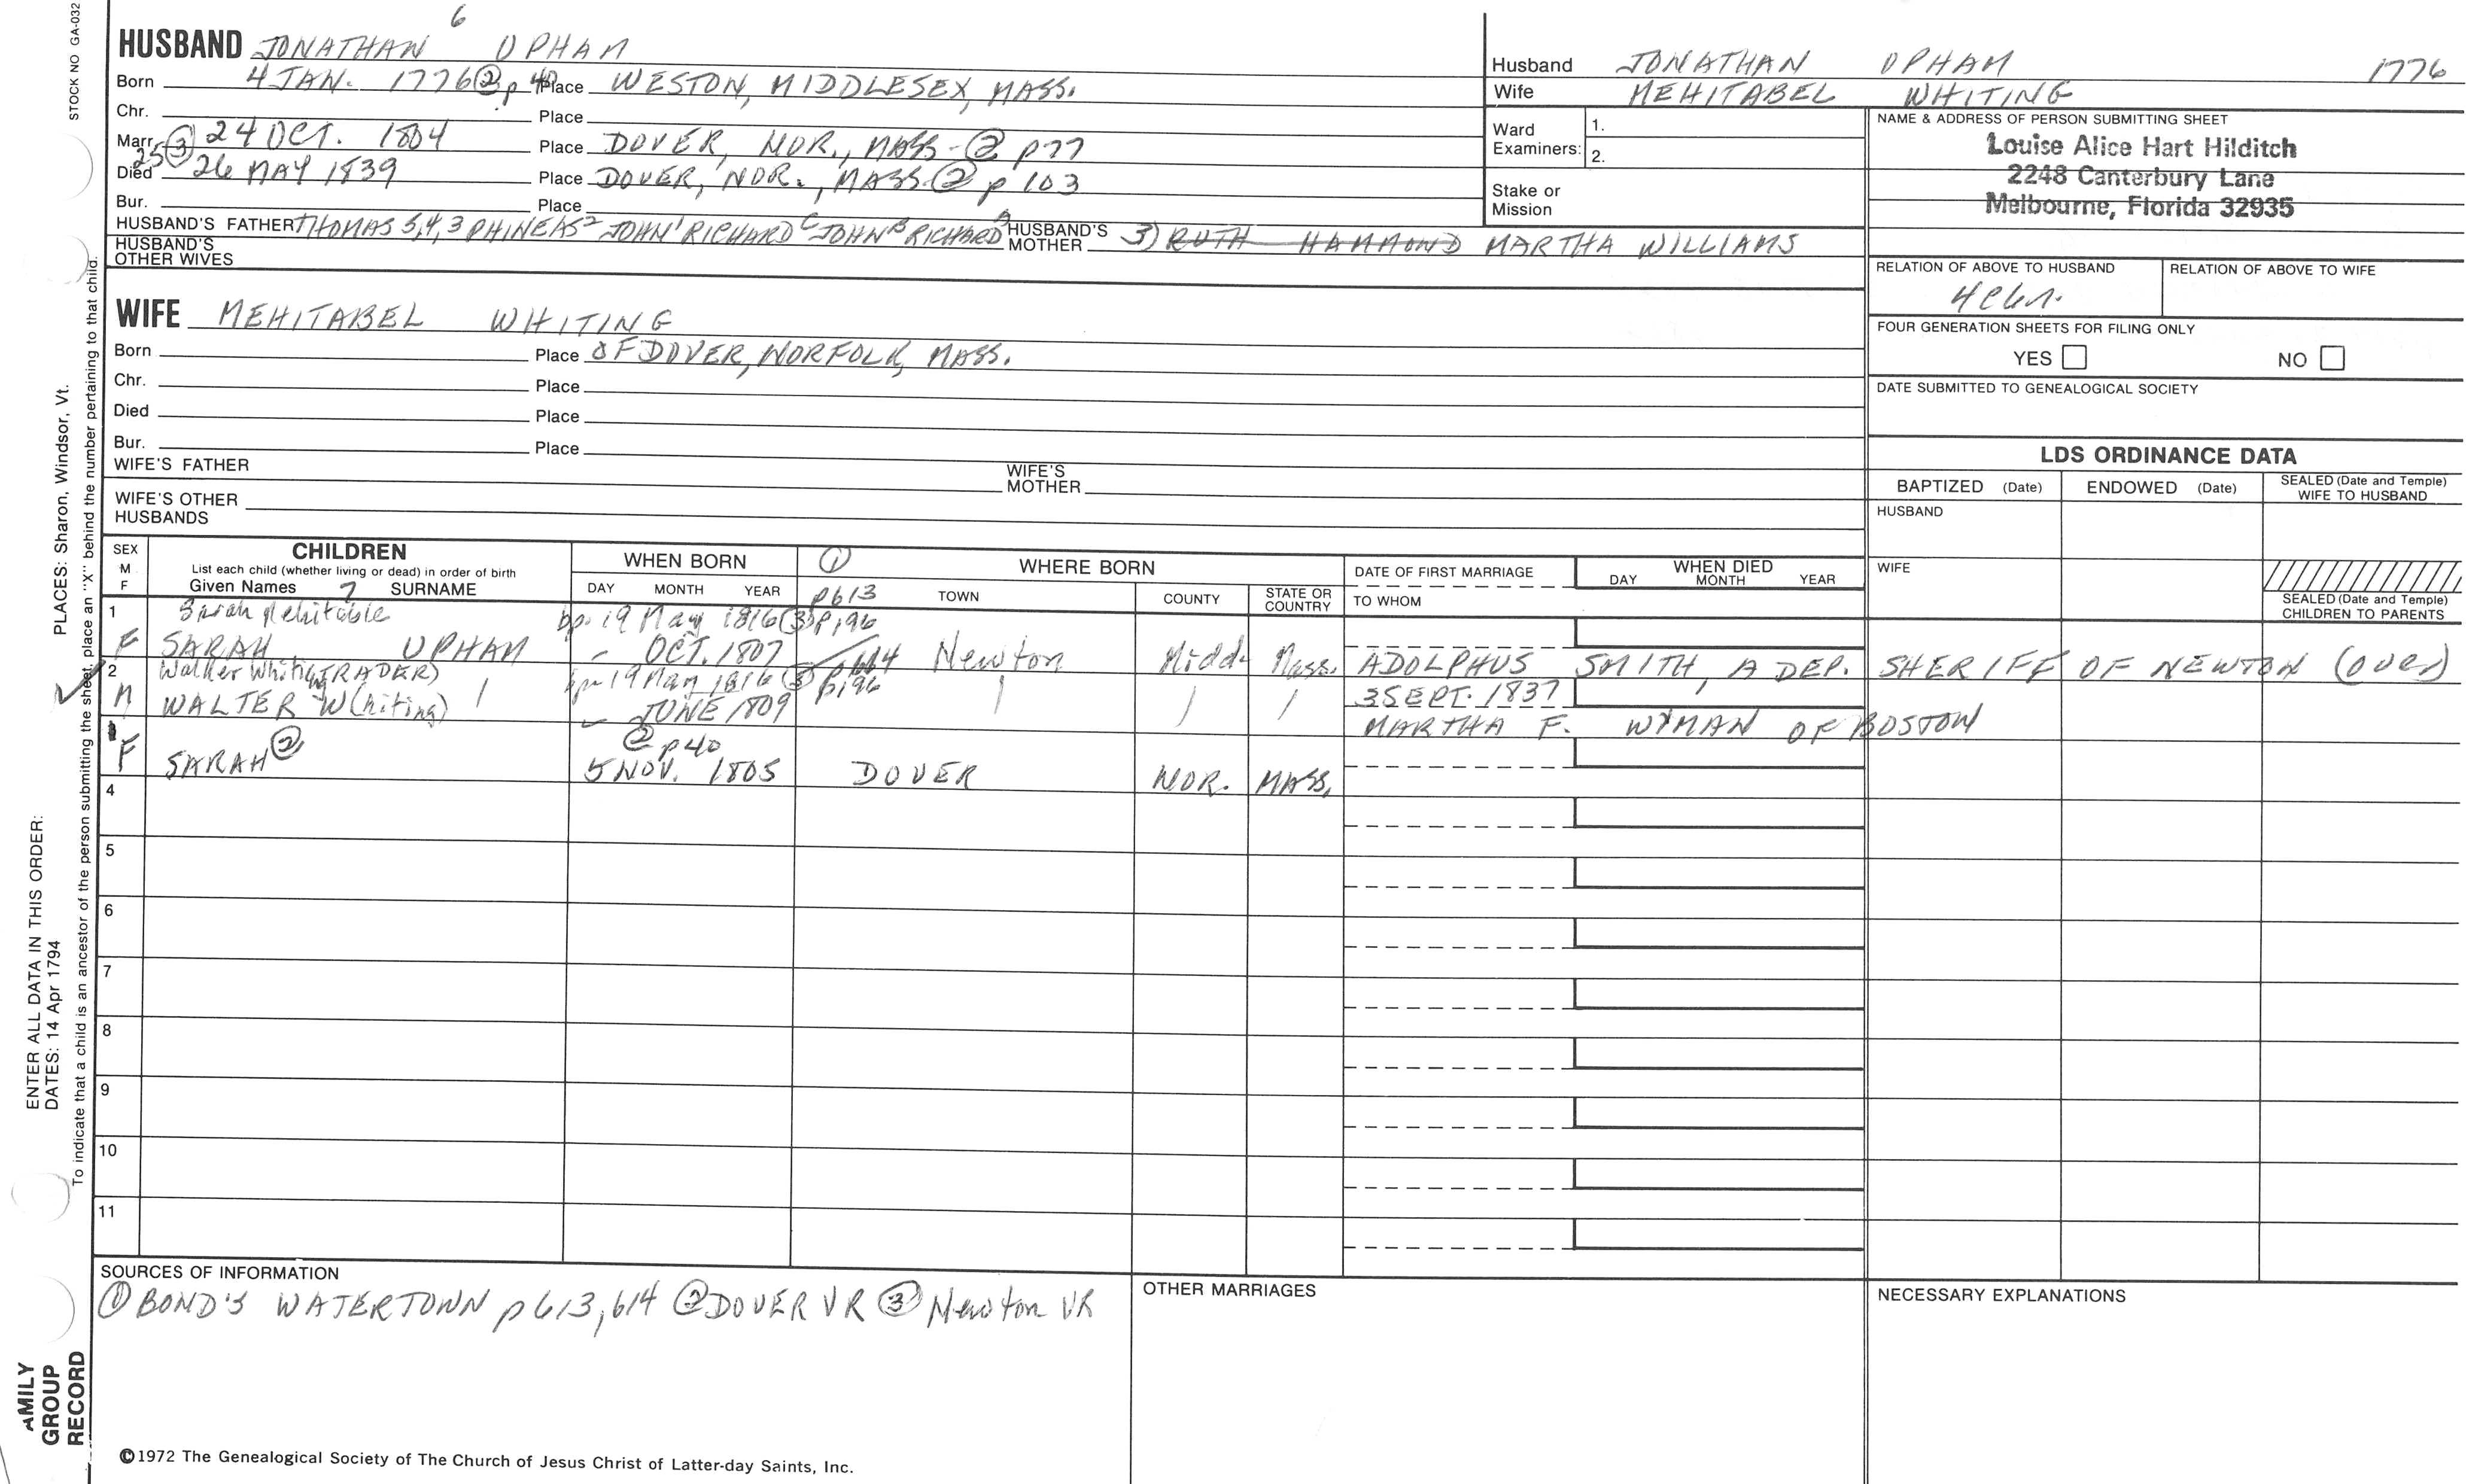 STOCK NO GA-032
6
HUSBAND JONATHAN UPHAM
Born 4 JAN. 1776 ② p 40 Place WESTON, MIDDLESEX, MASS.
Chr. Place
Marr. ③ 24 OCT. 1804 Place DOVER, NOR., MASS - ② p77
25
Died 26 MAY 1839 Place DOVER, NOR., MASS. ② p 103
Bur. Place
HUSBAND'S FATHER THOMAS 5,4,3 PHINEAS 2 JOHN 1 RICHARD C JOHN B RICHARD A HUSBAND'S MOTHER 3) RUTH HAMMOND MARTHA WILLIAMS
HUSBAND'S OTHER WIVES
Husband JONATHAN UPHAM 1776
Wife MEHITABEL WHITING
Ward Examiners: 1.
2.
Stake or Mission
NAME & ADDRESS OF PERSON SUBMITTING SHEET
Louise Alice Hart Hilditch
2248 Canterbury Lane
Melbourne, Florida 32935
RELATION OF ABOVE TO HUSBAND RELATION OF ABOVE TO WIFE
FOUR GENERATION SHEETS FOR FILING ONLY
YES NO
DATE SUBMITTED TO GENEALOGICAL SOCIETY
WIFE MEHITABEL WHITING
Born Place OF DOVER, NORFOLK, MASS.
Chr. Place
Died Place
Bur. Place
WIFE'S FATHER WIFE'S MOTHER
WIFE'S OTHER HUSBANDS
LDS ORDINANCE DATA
BAPTIZED (Date) ENDOWED (Date) SEALED (Date and Temple) WIFE TO HUSBAND
HUSBAND
WIFE
SEALED (Date and Temple) CHILDREN TO PARENTS
SEX M F
CHILDREN
List each child (whether living or dead) in order of birth
Given Names 7 SURNAME
WHEN BORN
DAY MONTH YEAR
① WHERE BORN
p613 TOWN COUNTY STATE OR COUNTRY
DATE OF FIRST MARRIAGE
TO WHOM
WHEN DIED
DAY MONTH YEAR
1 Sarah Mehitable bp 19 May 1816 ③ p196
F SARAH UPHAM - OCT. 1807 p614 Newton Midd. Mass. ADOLPHUS SMITH, A DEP. SHERIFF OF NEWTON (over)
2 Walker Whiting (TRADER) bp 19 May 1816 ③ p196 3 SEPT. 1837
M WALTER W(hiting) - JUNE 1809 MARTHA F. WYMAN OF BOSTON
3 ② p40
F SARAH ② 5 NOV. 1805 DOVER NOR. MASS.
4
5
6
7
8
9
10
11
SOURCES OF INFORMATION
① BOND'S WATERTOWN p 613, 614 ② DOVER VR ③ Newton VR
OTHER MARRIAGES
NECESSARY EXPLANATIONS
©1972 The Genealogical Society of The Church of Jesus Christ of Latter-day Saints, Inc.
AMILY GROUP RECORD
ENTER ALL DATA IN THIS ORDER:
DATES: 14 Apr 1794
PLACES: Sharon, Windsor, Vt.
To indicate that a child is an ancestor of the person submitting the sheet, place an "X" behind the number pertaining to that child.